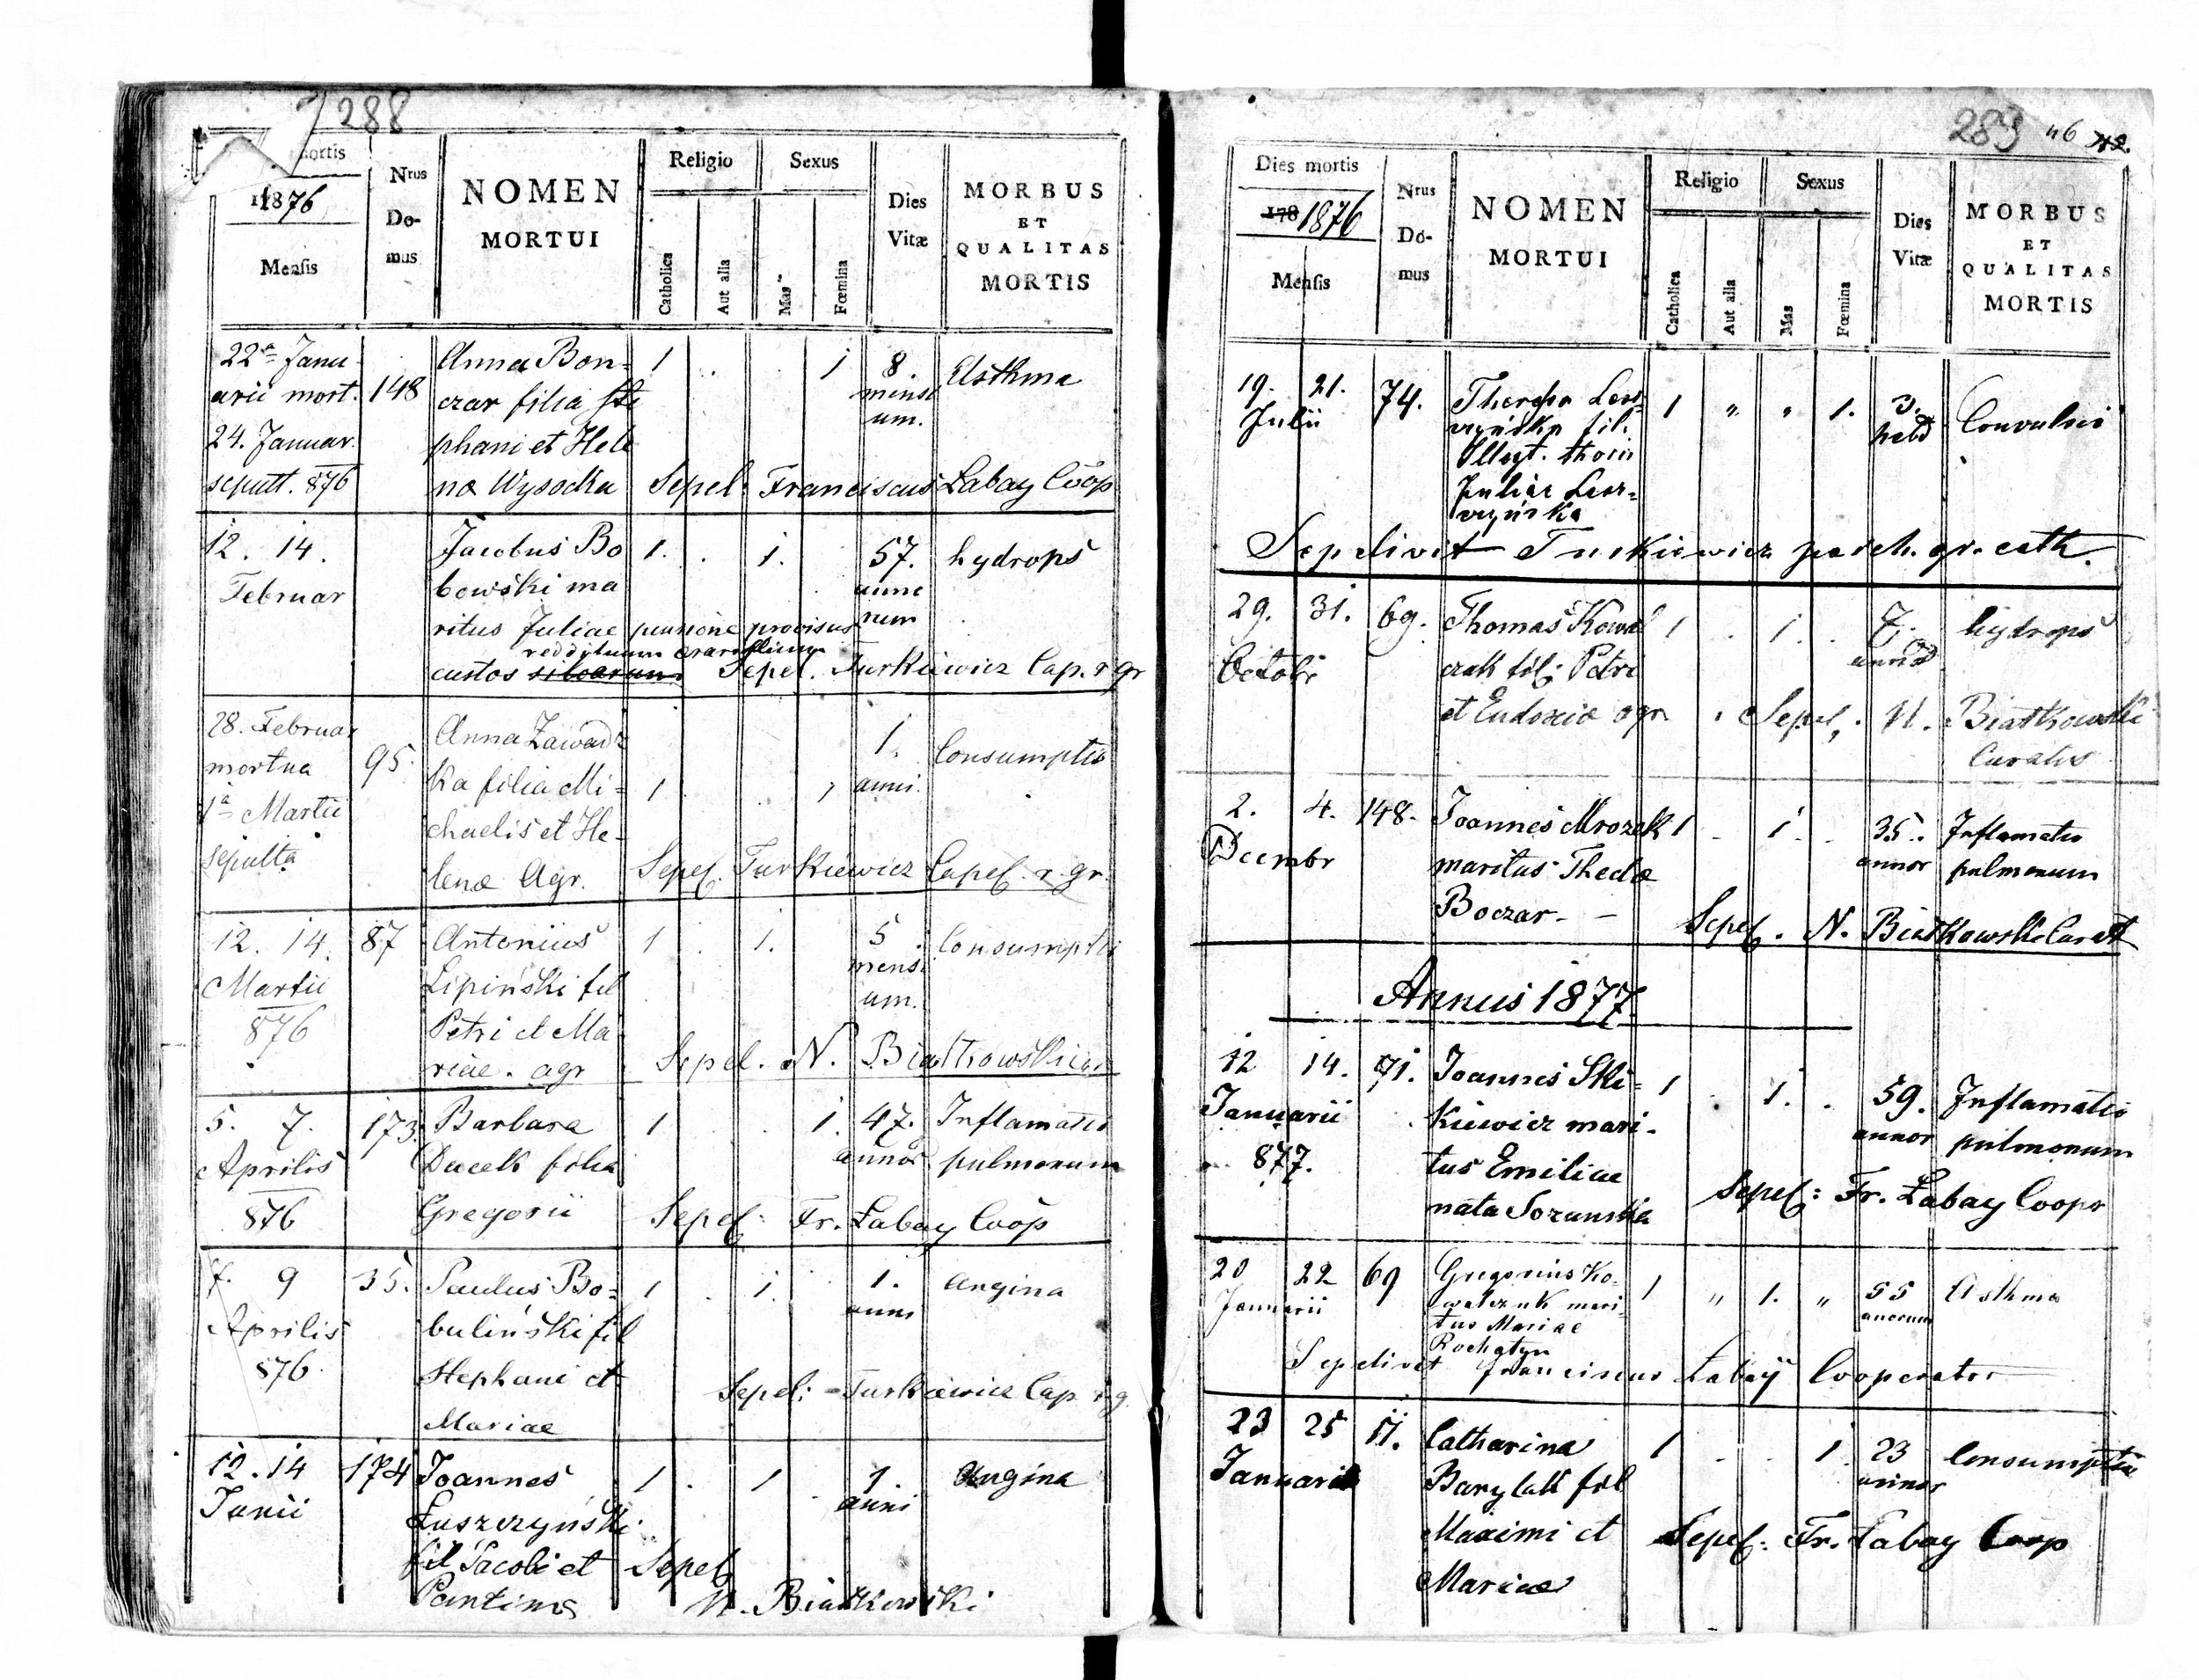 288
mortis
1876
Mensis
Nrus
Do-
mus
NOMEN
MORTUI
Religio
Catholica
Aut alia
Sexus
Mas
Fœmina
Dies
Vitæ
MORBUS
ET
QUALITAS
MORTIS
22a Janu
Anna Bon=
1 . . 1 8.
Asthma
arii mort. 148 czar filia Ste
mensi
um.
24. Januar phani et Hele
sepult. 876 na Wysocka Sepel: Franciscus Labay Coop
12. 14. Jacobus Bo 1. . 1. 57. hydrops
Februar bowski ma
anno
rum
ritus Juliae pensione provisus
reddituum
custos silvarum Sepel. Turkiewicz Cap. r gr
28. Februar Anna Zawadz 1. Consumptio
mortua 95. ka filia Mi= 1 . . 1 anni.
1a Martii chaelis et He-
sepulta lenæ Agr. Sepel. Turkiewicz Capel. r. gr.
12. 14. 87 Antonius 1 . 1. 5 Consumptio
mensi
um.
Martii Lipiński fil
876 Petri et Ma
riae. agr Sepel. N. Białkowski
5. 7. 173. Barbara 1 . . 1. 47. Inflamatio
Aprilis filia annor pulmonum
876 Gregorii Sepel: Fr. Labay Coop
7. 9 35. Paulus Bo= 1 . 1. 1. angina
anni
Aprilis buliński fil
876. Stephani et Sepel: Turkiewicz Cap. r g.
Mariae
12. 14 174 Joannes 1 . 1 1. Angina
anni
Junii Łuszczyński
fil Jacobi et Sepel
N. Białkowski
283 46 42.
Dies mortis
178 1876
Mensis
Nrus
Do-
mus
NOMEN
MORTUI
Religio
Catholica
Aut alia
Sexus
Mas
Fœmina
Dies
Vitæ
MORBUS
ET
QUALITAS
MORTIS
19. 21. 74. Theresa 1 " " 1. 3. Convulsio
Julii fil.
hebd
Illegt. thori
Juliae
Sepelivit Turkiewicz paroch. gr. cath.
29. 31. 69. Thomas Kowal 1 . 1. . 7. hydrops
Octobr czak fil: Petri
et Eudoxiæ agr. Sepel. N. Białkowski
Curatus
2. 4. 148. Joannes Mrozek 1 . 1. . 35. Inflamatio
Decembr maritus Theclæ annor pulmonum
Boczar - Sepel. N. Białkowski Curat
Annus 1877.
12 14. 71. Joannes Ski= 1 . 1. . 59. Inflamatio
Januarii kiewicz mari- annor pulmonum
877. tus Emiliae
nata Sozanska Sepel: Fr. Labay Coop
20 22 69 Gregorius Ko- 1 " 1. " 55 Asthma
Januarii walczuk mari- anorum
tus Mariae
Rochatyn
Sepelivit franciscus Labay Cooperator
23 25 11. Catharina 1 . . 1. 23 Consumptio
Januarii Barylak fil annor
Maximi et Sepel: Fr. Labay Coop
Mariae